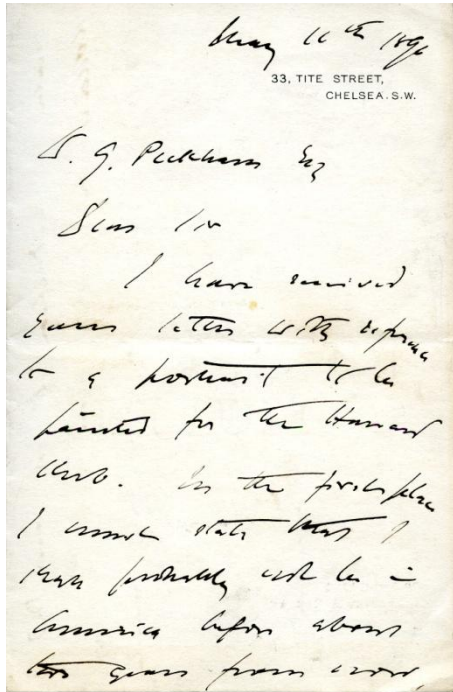 May 11th 1896
33, TITE STREET,
CHELSEA. S.W.
W. G. Peckham Esq
Dear Sir
I have received
your letter with reference
to a portrait to be
painted for the Harvard
Club. In the first place
I must state that I
shall probably not be in
America before about
two years from now,